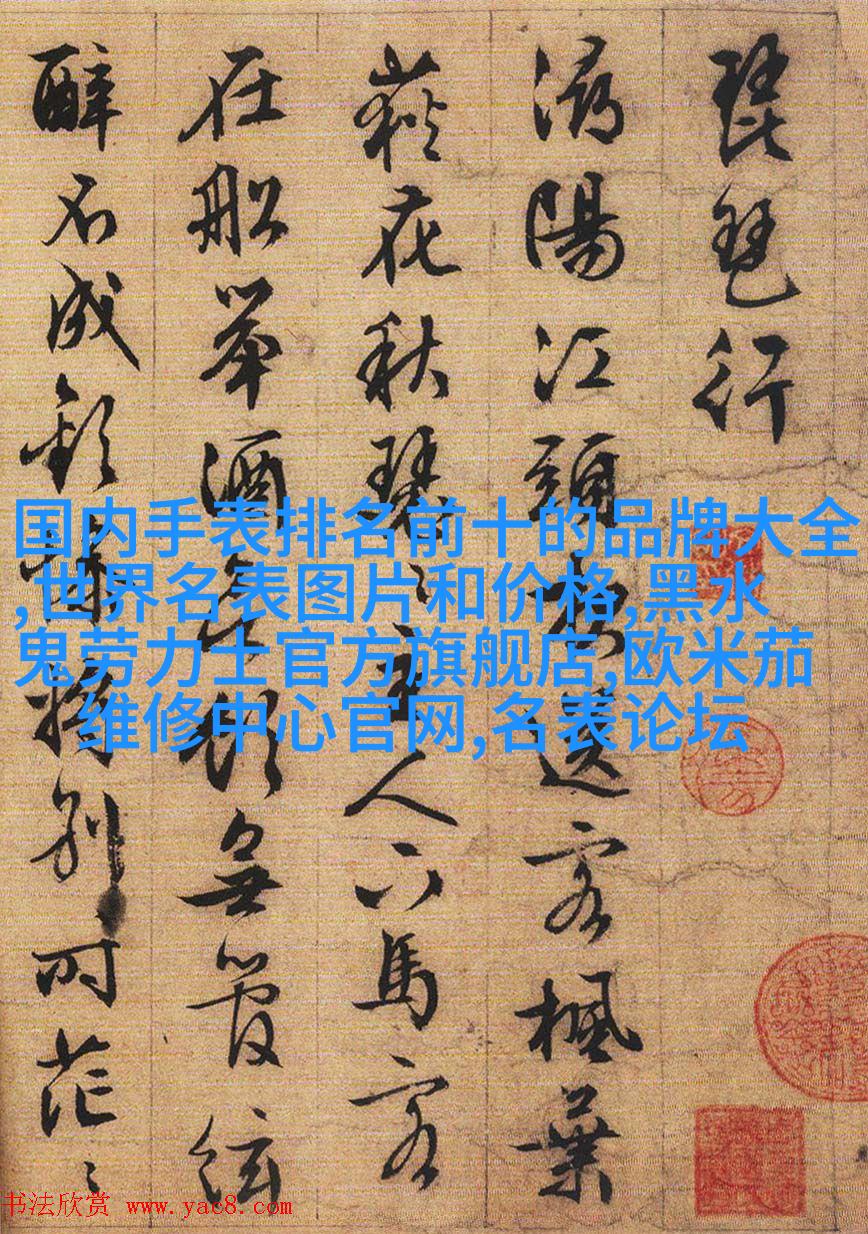 琵琶行
潯陽江頭夜送客楓葉
荻花秋瑟〻主人下馬客
在船舉酒欲飲無管絃
醉不成歡慘將別〻時茫〻
国内手表排名前十的品牌大全
,世界名表图片和价格,黑水
鬼劳力士官方旗舰店,欧米茄
维修中心官网,名表论坛
书法欣赏 www.yac8.com